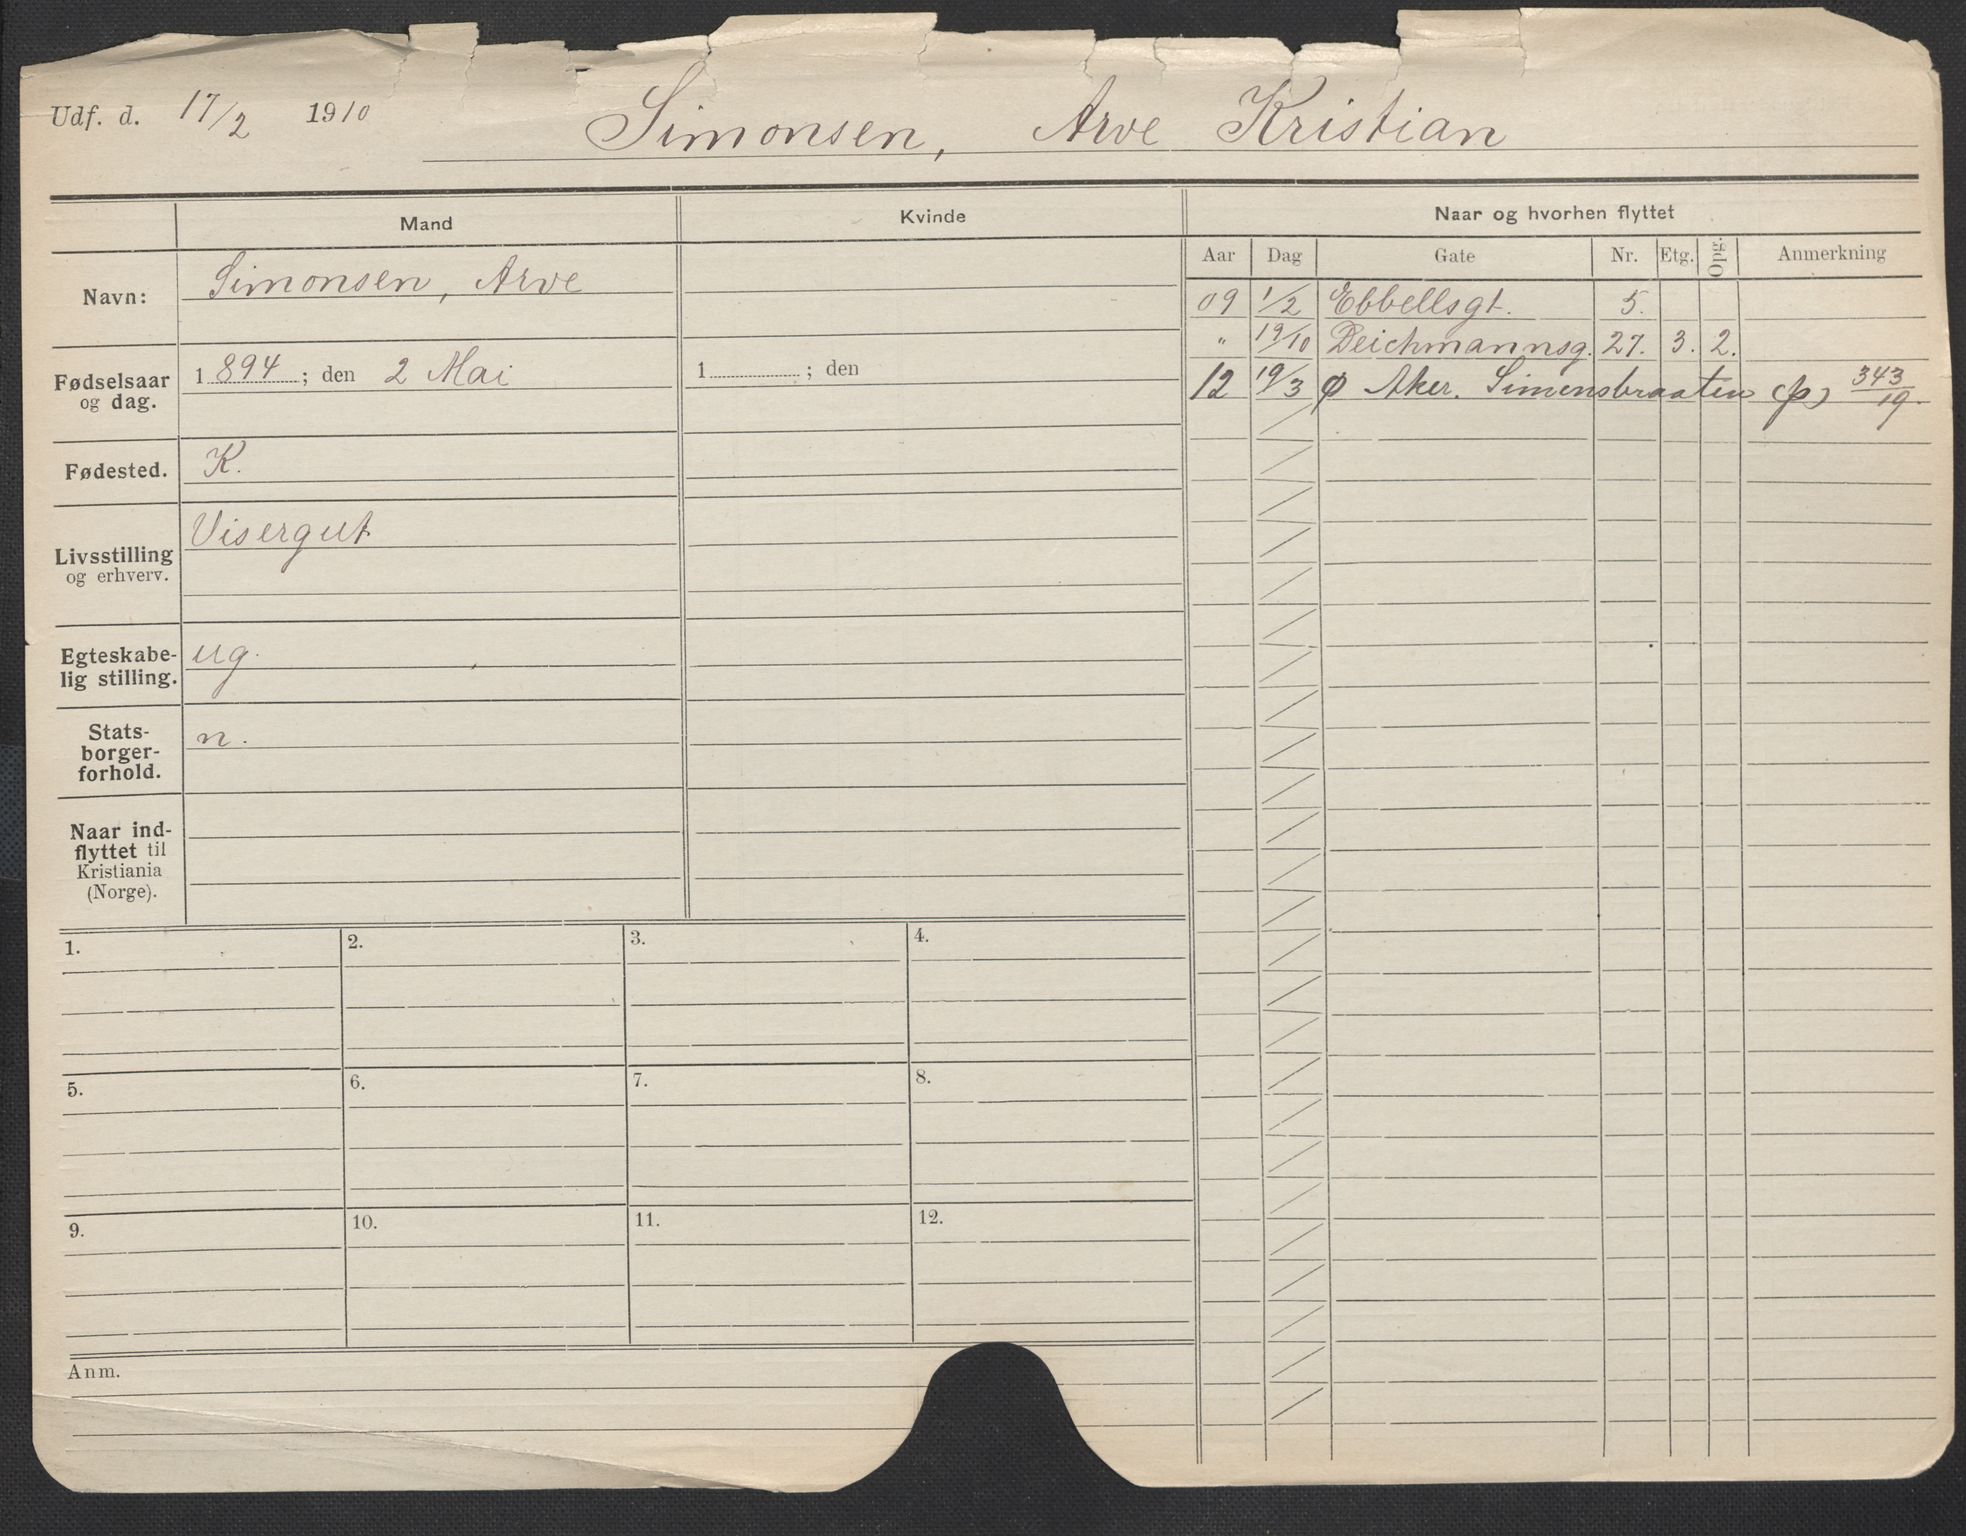 Udf. d. 17/2 1910 Simonsen, Arve Kristian
Mand Kvinde Naar og hvorhen flyttet
Aar Dag Gate Nr. Etg. Opg. Anmerkning
Navn: Simonsen, Arve
09 1/2 Ebbellsgt. 5.
" 19/10 Deichmannsg. 27. 3. 2.
12 19/3 Ø Aker. Simensbraaten (p) 343/19.
Fødselsaar
og dag.
1894; den 2 Mai 1 ; den
Fødested. K.
Livsstilling
og erhverv.
Visergut
Egteskabe-
lig stilling.
ug.
Stats-
borger-
forhold.
n.
Naar ind-
flyttet til
Kristiania
(Norge).
1. 2. 3. 4.
5. 6. 7. 8.
9. 10. 11. 12.
Anm.